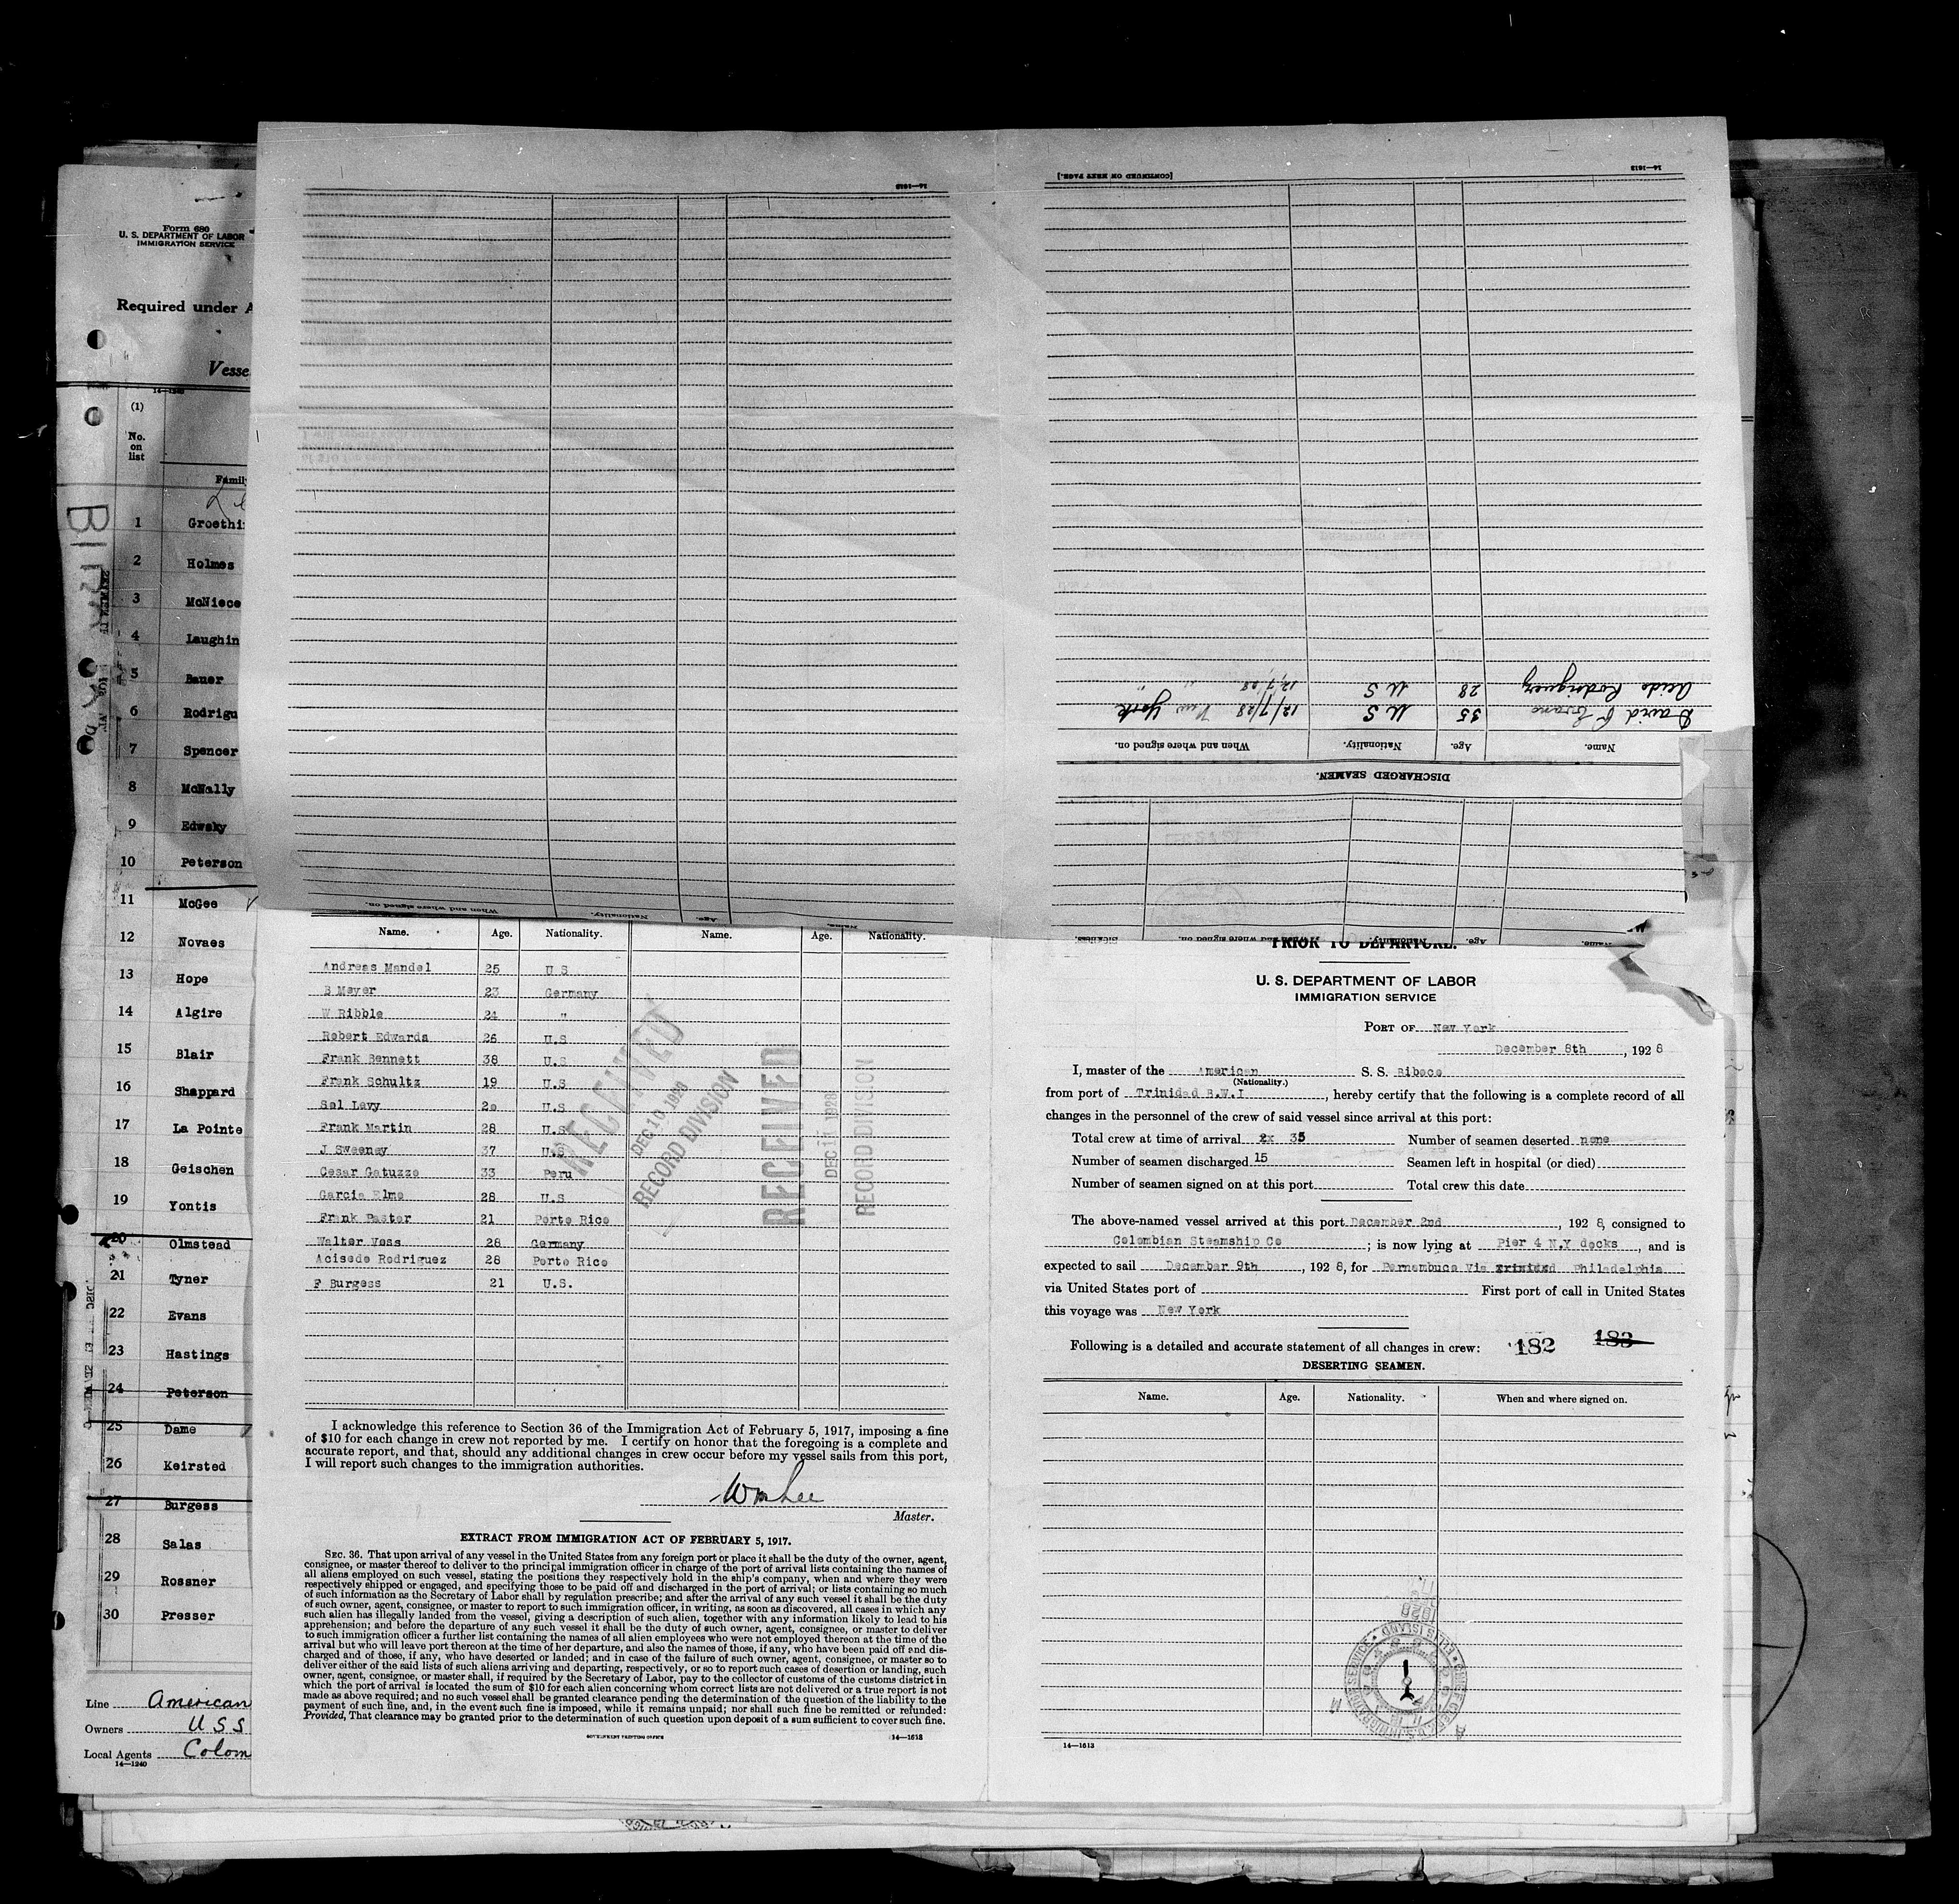 Form 680
U. S. DEPARTMENT OF LABOR
IMMIGRATION SERVICE
Required under A
Vesse
14—1240
(1)
No.
on
list
Famil
1 Groethi
2 Holmes
3 McNiece
4 Laughin
5 Bauer
6 Rodrigu
7 Spencer
8 McNally
9 Edwsky
10 Peterson
11 McGee
12 Novaes
13 Hope
14 Algire
15 Blair
16 Shappard
17 La Pointe
18 Geischen
19 Yontis
20 Olmstead
21 Tyner
22 Evans
23 Hastings
24 Peterson
25 Dame
26 Keirsted
27 Burgess
28 Salas
29 Rossner
30 Presser
Line American
Owners U S S
Local Agents Colom
14—1240
14—1613
When and where signed on. Nationality. Age. Name.
[CONTINUED ON NEXT PAGE.] 14—1613
DISCHARGED SEAMEN.
Name. Age. Nationality. When and where signed on.
David F Crane 35 U S 12/7/28 New York
Acide Rodriguez 28 U S 12/7/28 " "
Name. Age. Nationality. When and where signed on. Sickness.
Name. Age. Nationality. Name. Age. Nationality.
Andreas Mandel 25 U S
B Meyer 23 Germany
W Ribble 24 "
Robert Edwards 26 U.S
Frank Bennett 38 U.S
Frank Schultz 19 U.S
Sol Levy 2o U.S
Frank Martin 28 U.S
J Sweeney 37 U.S
Cesar Gatuzzo 33 Peru
Garcia Elmo 28 U.S
Frank Pastor 21 Porto Rico
Walter Voss 28 Germany
Acisedo Rodriguez 28 Porto Rico
F Burgess 21 U.S.
RECEIVED
DEC 10 1928
RECORD DIVISION
RECEIVED
DEC 11 1928
RECORD DIVISION
I acknowledge this reference to Section 36 of the Immigration Act of February 5, 1917, imposing a fine
of $10 for each change in crew not reported by me. I certify on honor that the foregoing is a complete and
accurate report, and that, should any additional changes in crew occur before my vessel sails from this port,
I will report such changes to the immigration authorities.
Wm Lee
Master.
EXTRACT FROM IMMIGRATION ACT OF FEBRUARY 5, 1917.
SEC. 36. That upon arrival of any vessel in the United States from any foreign port or place it shall be the duty of the owner, agent,
consignee, or master thereof to deliver to the principal immigration officer in charge of the port of arrival lists containing the names of
all aliens employed on such vessel, stating the positions they respectively hold in the ship's company, when and where they were
respectively shipped or engaged, and specifying those to be paid off and discharged in the port of arrival; or lists containing so much
of such information as the Secretary of Labor shall by regulation prescribe; and after the arrival of any such vessel it shall be the duty
of such owner, agent, consignee, or master to report to such immigration officer, in writing, as soon as discovered, all cases in which any
such alien has illegally landed from the vessel, giving a description of such alien, together with any information likely to lead to his
apprehension; and before the departure of any such vessel it shall be the duty of such owner, agent, consignee, or master to deliver
to such immigration officer a further list containing the names of all alien employees who were not employed thereon at the time of the
arrival but who will leave port thereon at the time of her departure, and also the names of those, if any, who have been paid off and dis-
charged and of those, if any, who have deserted or landed; and in case of the failure of such owner, agent, consignee, or master so to
deliver either of the said lists of such aliens arriving and departing, respectively, or so to report such cases of desertion or landing, such
owner, agent, consignee, or master shall, if required by the Secretary of Labor, pay to the collector of customs of the customs district in
which the port of arrival is located the sum of $10 for each alien concerning whom correct lists are not delivered or a true report is not
made as above required; and no such vessel shall be granted clearance pending the determination of the question of the liability to the
payment of such fine, and, in the event such fine is imposed, while it remains unpaid; nor shall such fine be remitted or refunded:
Provided, That clearance may be granted prior to the determination of such question upon deposit of a sum sufficient to cover such fine.
GOVERNMENT PRINTING OFFICE 14—1613
PRIOR TO DEPARTURE.
U. S. DEPARTMENT OF LABOR
IMMIGRATION SERVICE
PORT OF New York
December 8th, 1928
I, master of the American S. S. Biboco
(Nationality.)
from port of Trinidad B.W.I, hereby certify that the following is a complete record of all
changes in the personnel of the crew of said vessel since arrival at this port:
Total crew at time of arrival 2x 35 Number of seamen deserted none
Number of seamen discharged 15 Seamen left in hospital (or died)
Number of seamen signed on at this port Total crew this date
The above-named vessel arrived at this port December 2nd, 1928, consigned to
Colombian Steamship Co; is now lying at Pier 4 N.Y docks, and is
expected to sail December 9th, 1928, for Pernambuco Via Trinidad Philadelphia
via United States port of First port of call in United States
this voyage was New York
Following is a detailed and accurate statement of all changes in crew: 182 183
DESERTING SEAMEN.
Name. Age. Nationality. When and where signed on.
1928
U.S. IMMIGRATION SERVICE ELLIS ISLAND
14—1613